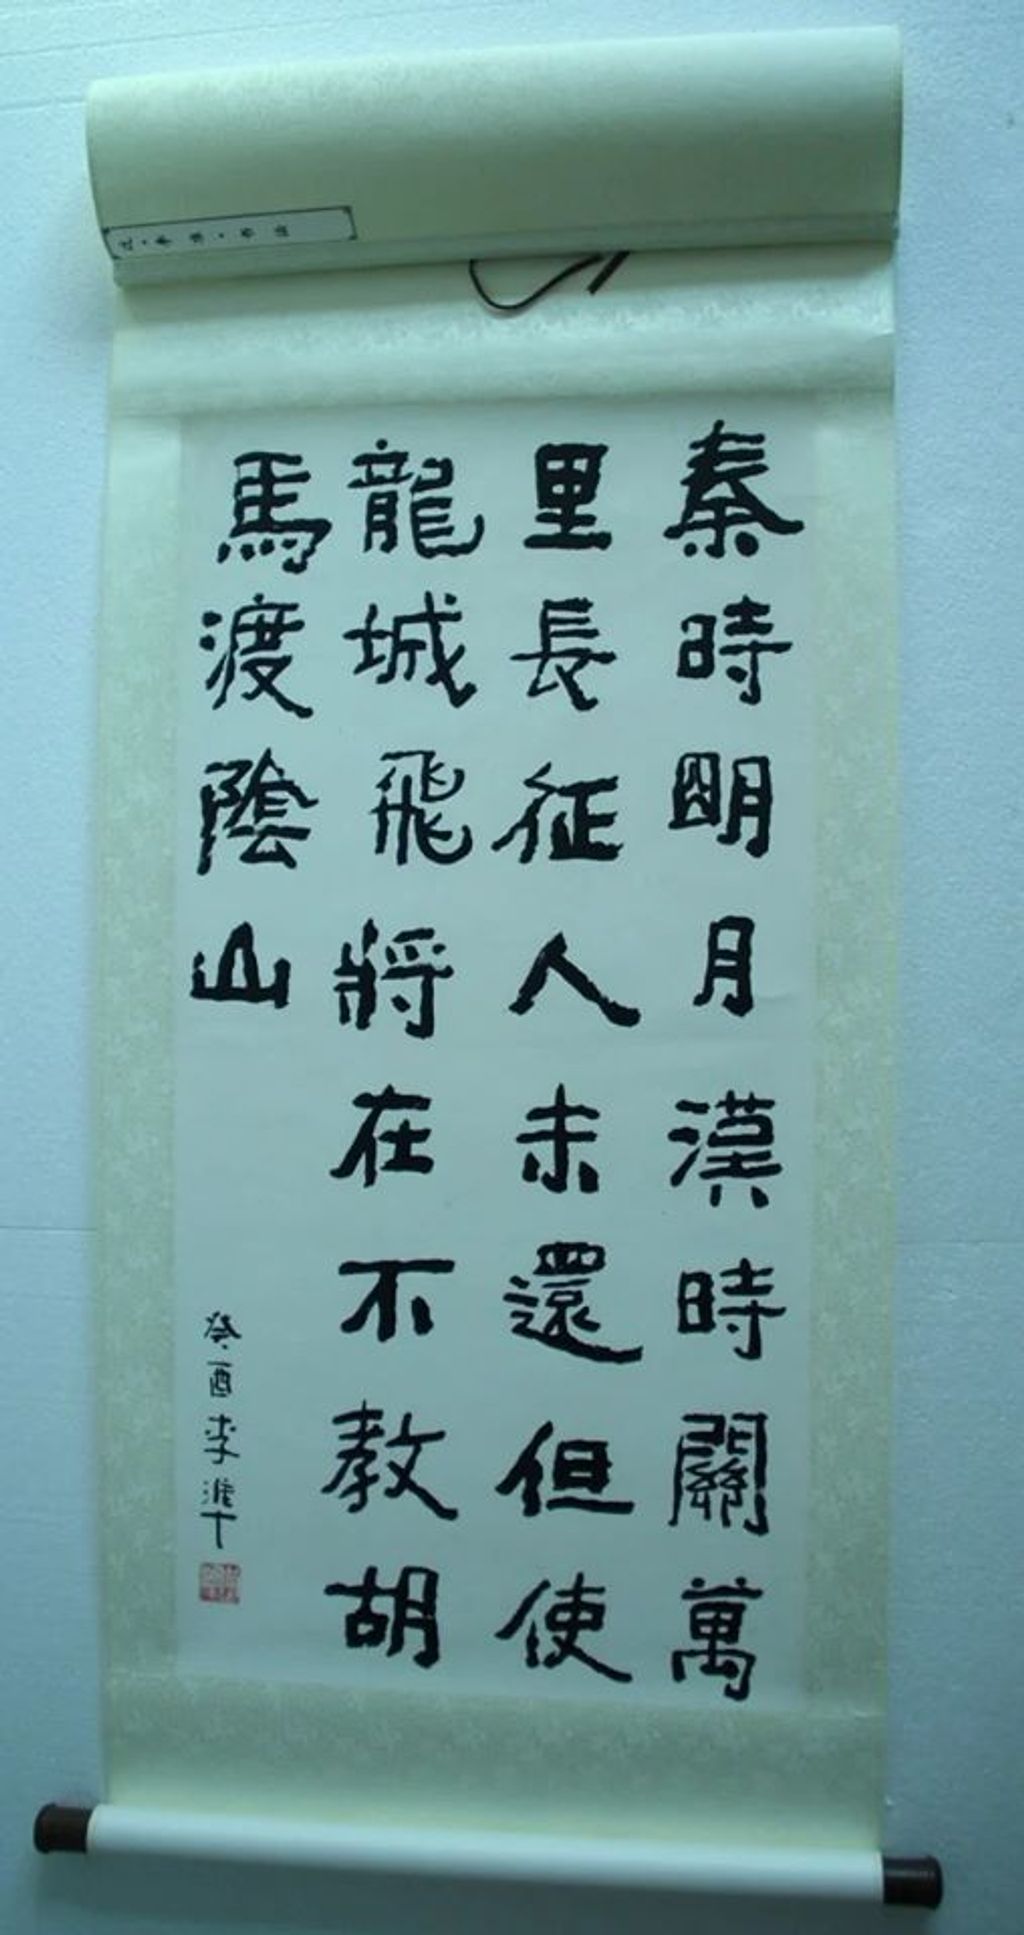 秦時明月漢時關萬
里長征人未還但使
龍城飛將在不教胡
馬渡陰山
癸酉李準